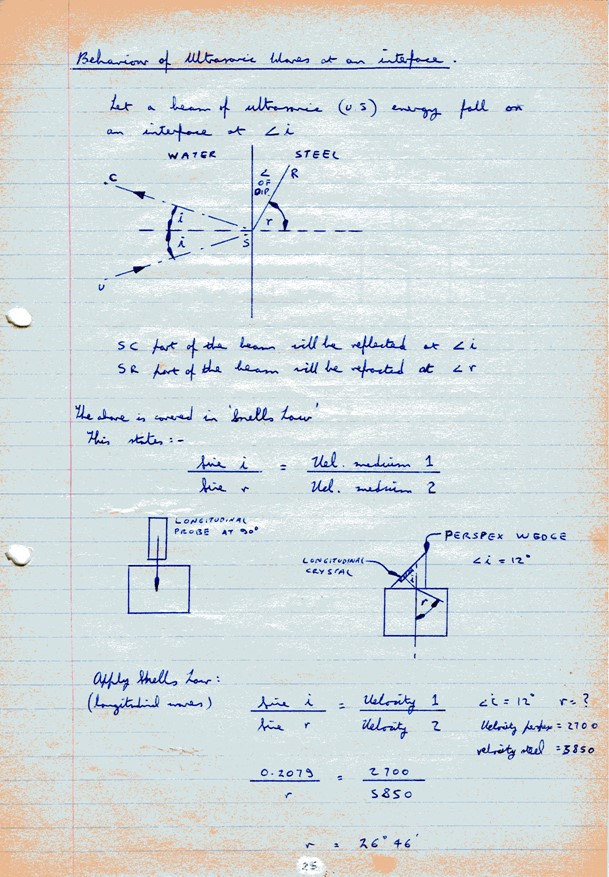 Behaviour of Ultrasonic Waves at an interface.
Let a beam of ultrasonic (US) energy fall on
an interface at ∠i
WATER STEEL
C
∠ OF DIP.
R
i
r
i
S
U
SC part of the beam will be reflected at ∠i
SR part of the beam will be refracted at ∠r
The above is covered in 'Snells Law'
This states:-
Sine i = Vel. medium 1
Sine r Vel. medium 2
LONGITUDINAL
PROBE AT 90°
PERSPEX WEDGE
LONGITUDINAL
CRYSTAL
∠i = 12°
i
r
Apply Snells Law:
(longitudinal waves)
Sine i = Velocity 1
Sine r Velocity 2
∠i = 12° r = ?
Velocity perspex = 2700
velocity steel = 5850
0.2079 = 2700
r 5850
r = 26° 46'
25